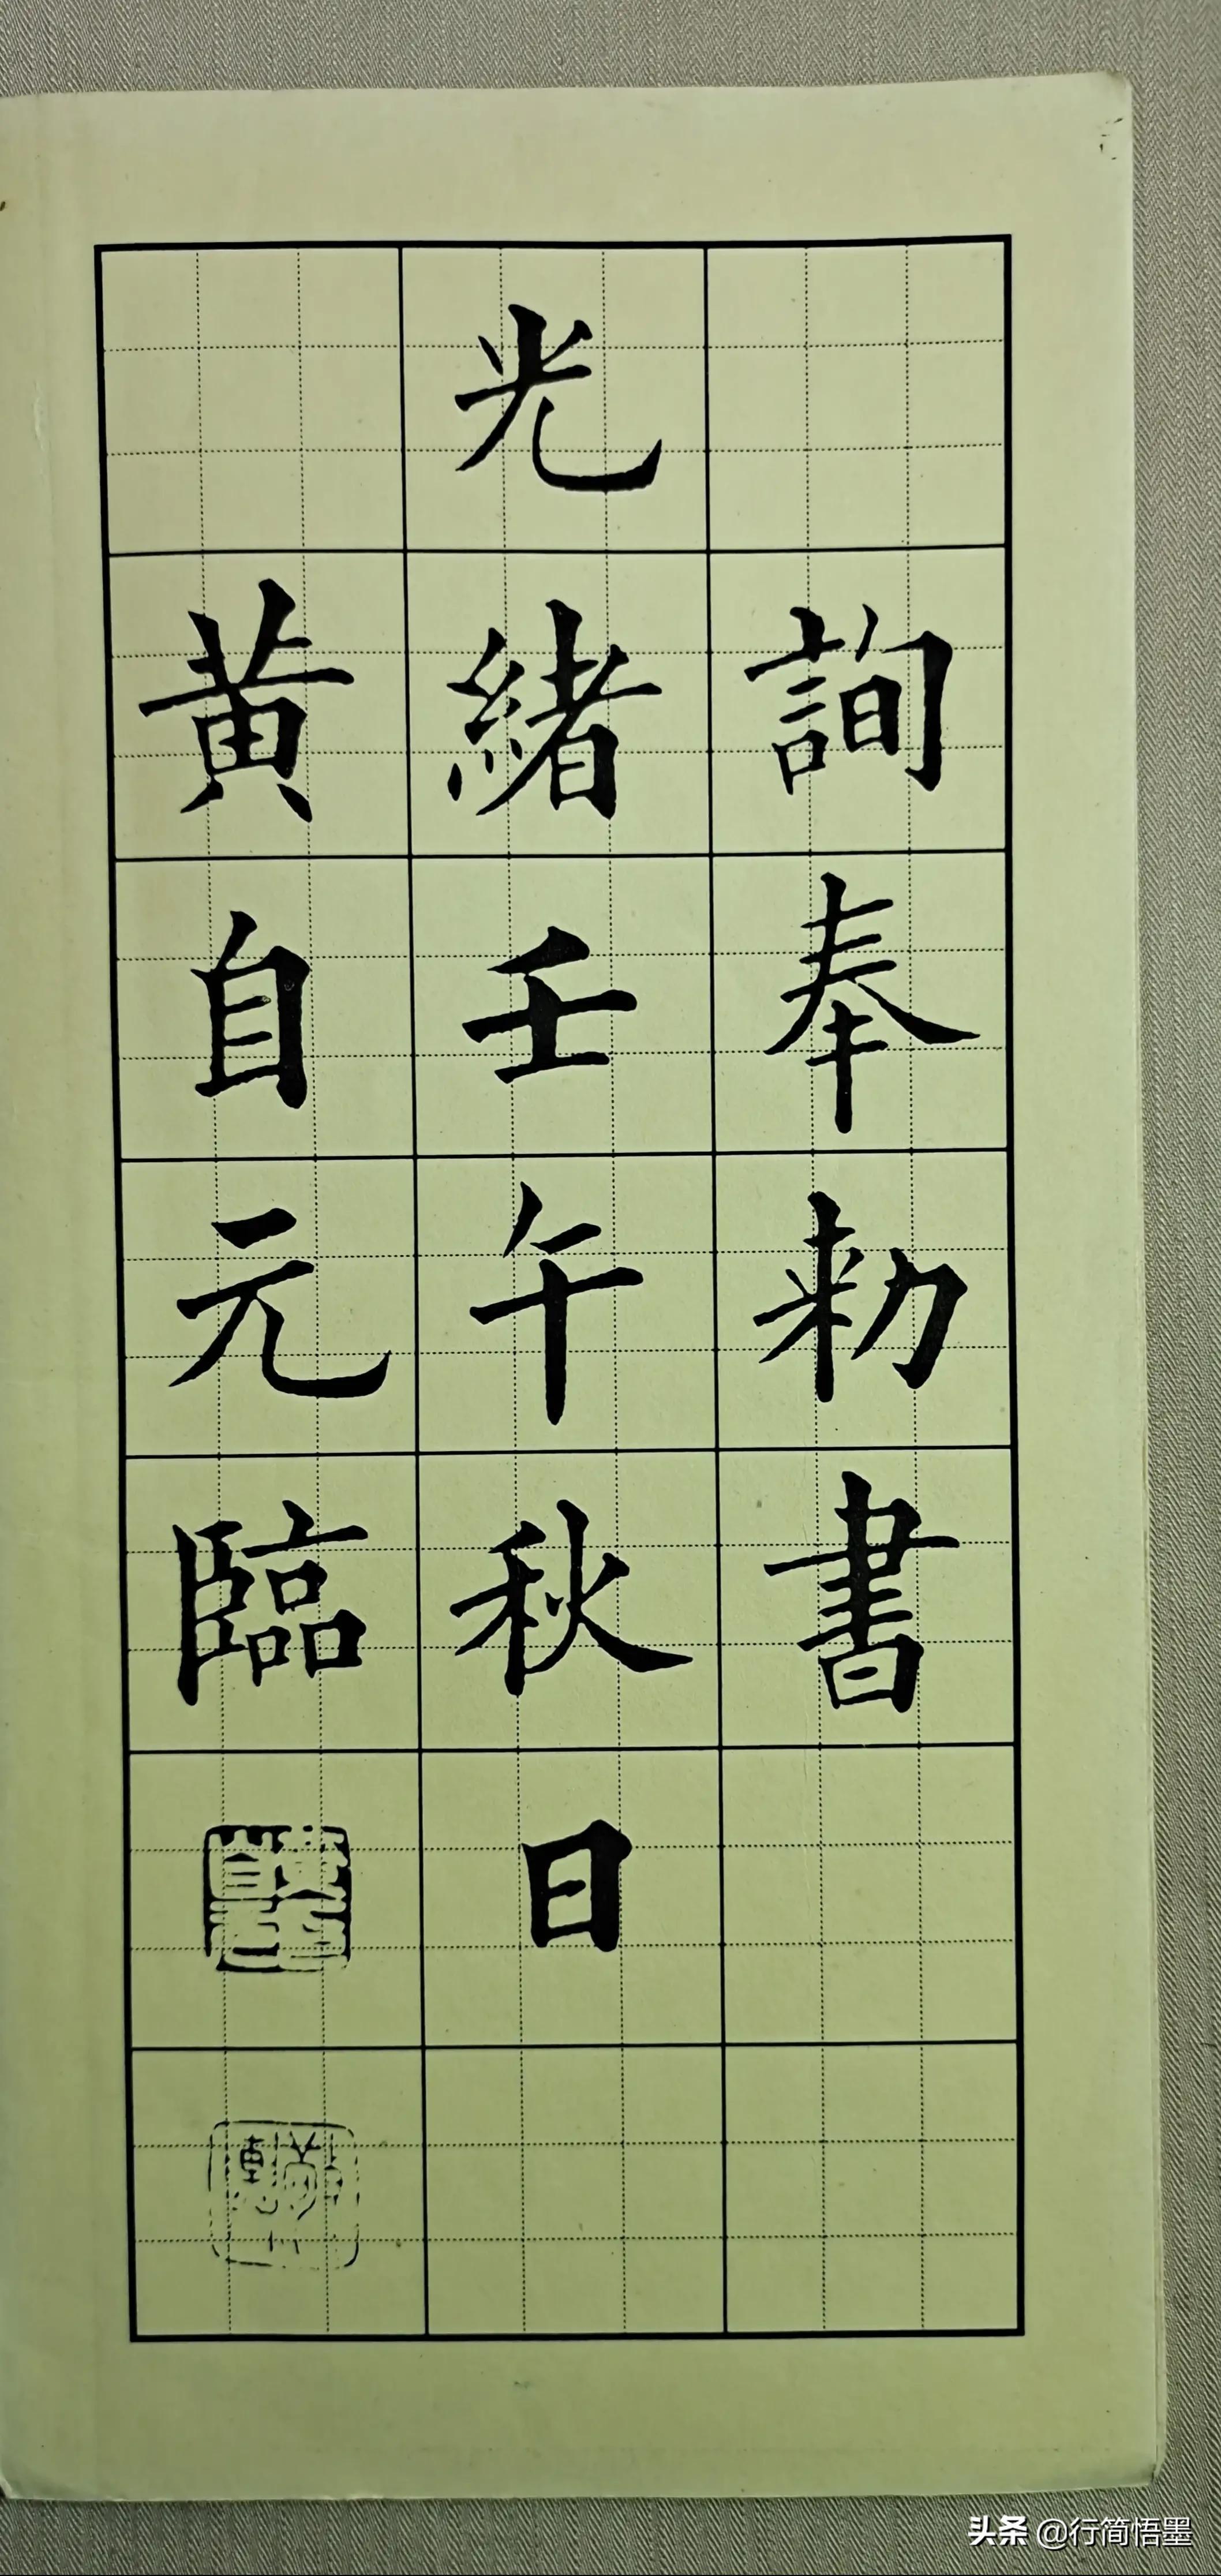 詢奉勑書
光緒壬午秋日
黃自元臨
头条 @行简悟墨